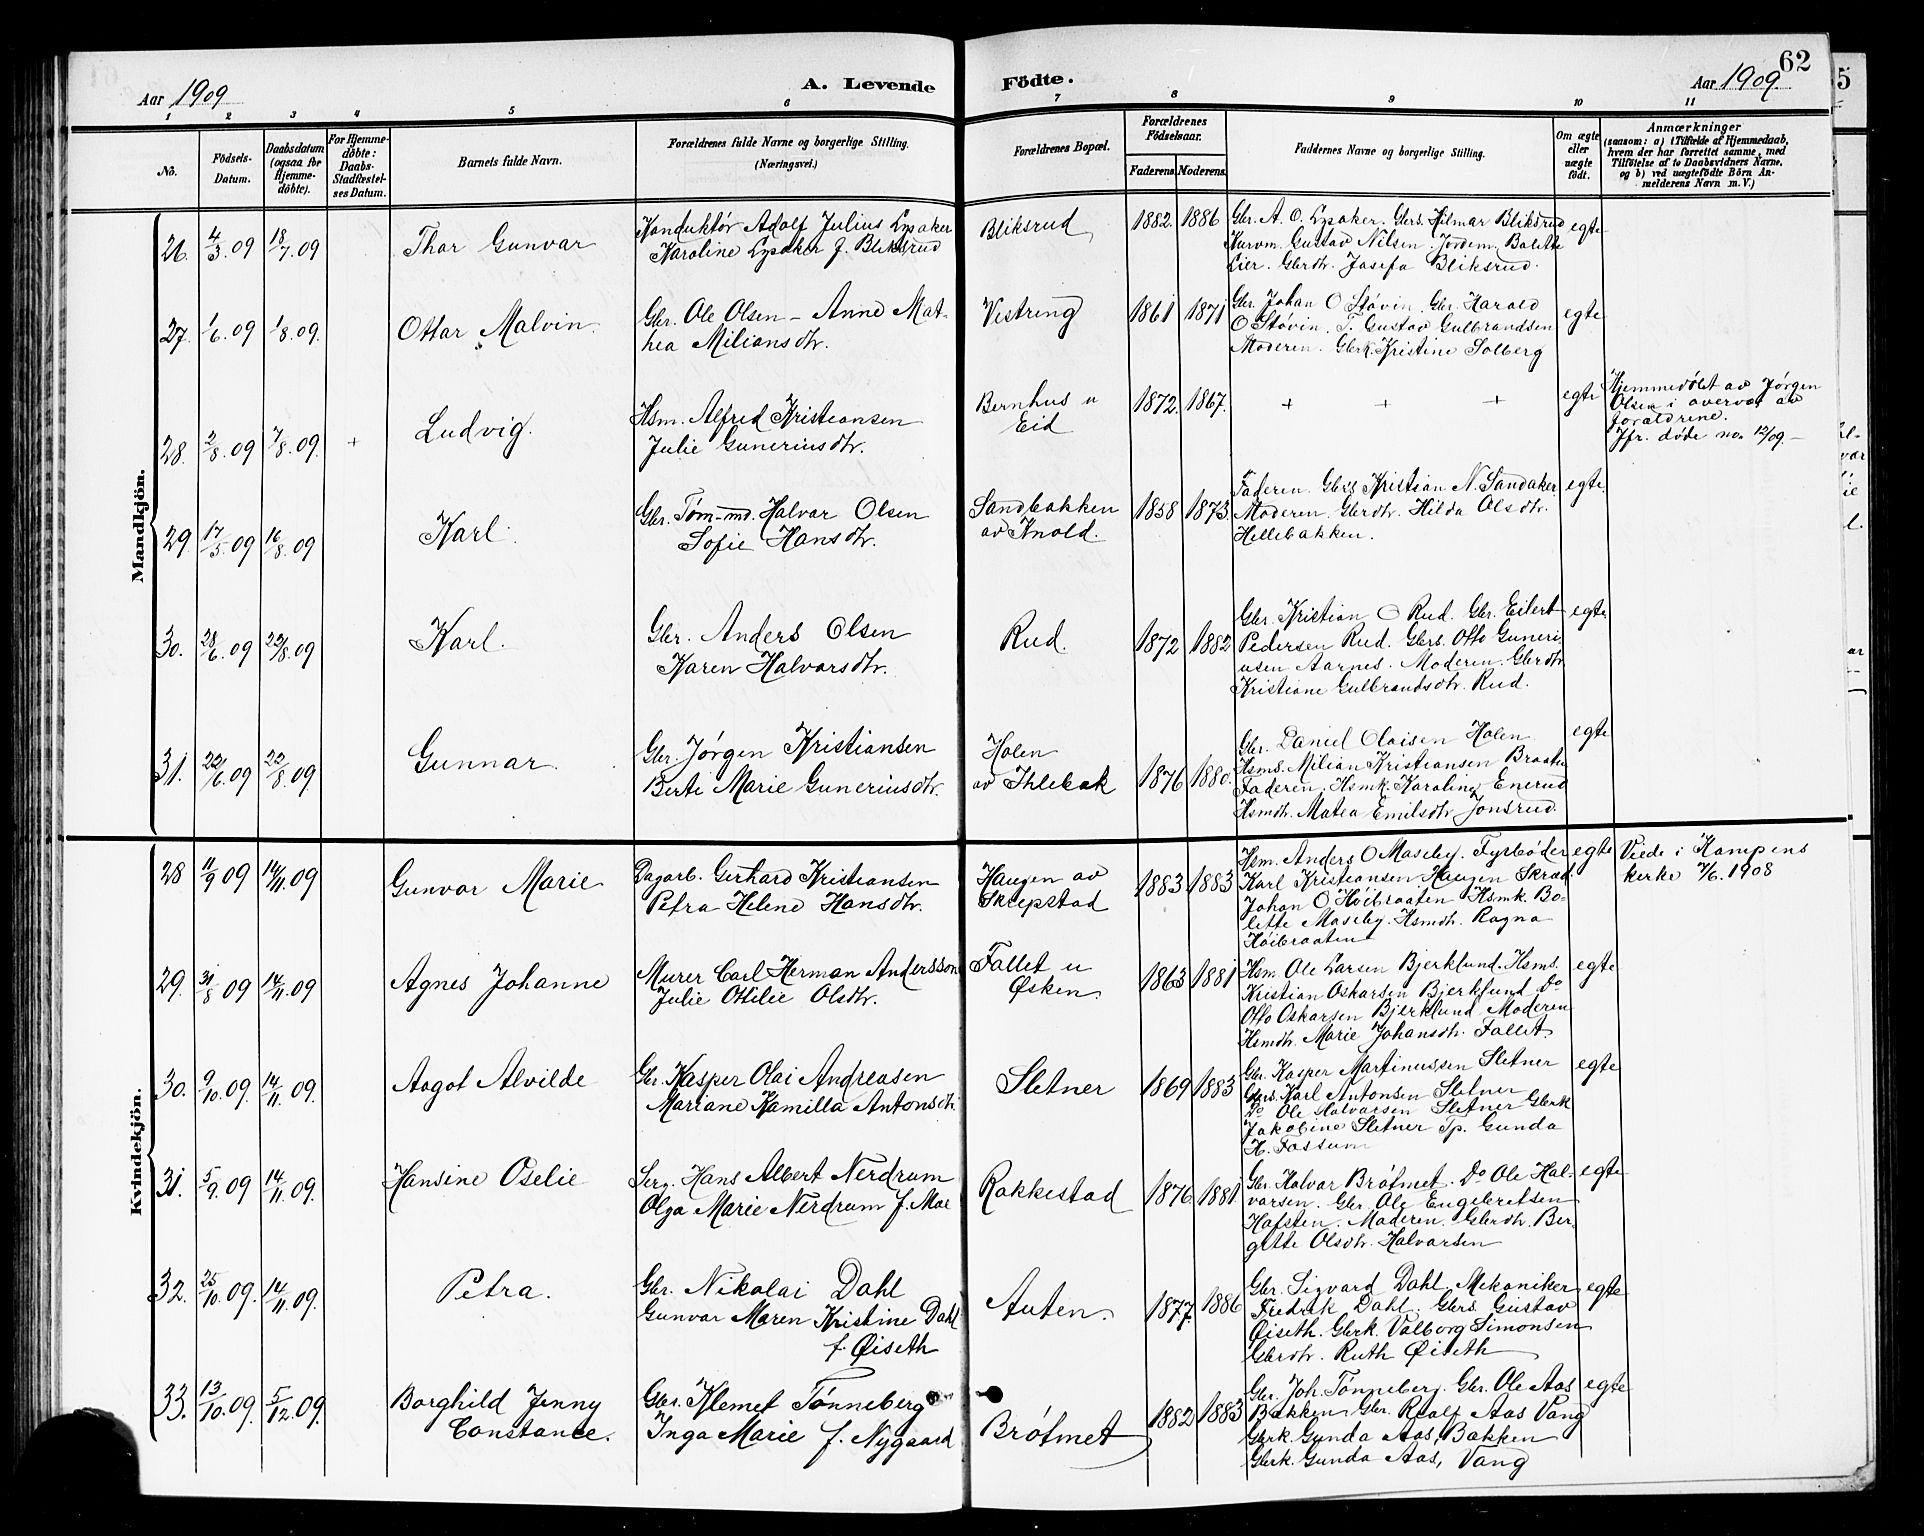 62
Aar 1909 A. Levende Födte. Aar 1909.
1 2 3 4 5 6 7 8 9 10 11
No.
Födsels-
Datum.
Daabsdatum
(ogsaa for
Hjemme-
döbte).
For Hjemme-
döbte:
Daabs-
Stadfæstel-
ses Datum.
Barnets fulde Navn.
Forældrenes fulde Navne og borgerlige Stilling.
(Næringsvei.)
Forældrenes Bopæl.
Forældrenes
Födselsaar.
Faderens. Moderens.
Faddernes Navne og borgerlige Stilling.
Om ægte
eller
uægte
födt.
Anmærkninger
(saasom: a) i Tilfælde af Hjemmedaab,
hvem der har forrettet samme, med
Tilföielse af to Daabsvidners Navne,
og b) ved uægtefödte Börn An-
melderens Navn m. V.)
Mandkjön.
26. 4/3. 09 18/7. 09 Thor Gunvar
Konduktør Adolf Julius Lysaker
Karoline Lysaker f. Bliksrud
Bliksrud 1882. 1886
Gbr. A. O. Lysaker. Gbrs. Hilmar Bliksrud
Kurvm. Gustav Nilsen. Jordem. Bolette
Lier. Gbrdtr. Josefa Bliksrud.
egte
27. 1/6. 09 1/8. 09. Ottar Malvin.
Gbr. Ole Olsen – Anne Mat-
hea Miliansdtr.
Vestreng 1861 1871
Gbr. Johan O Støvin. Gbr. Harald
O Støvin. T. Gustav Gulbrandsen
Moderen. Gbrk. Kristine Solberg
egte
28. 2/8. 09 7/8. 09. + Ludvig.
Hsm. Alfred Kristiansen
Julie Guneriusdtr.
Bernhus u
Eid
1872. 1867.
+ + +
egte
Hjemmedøbt av Jørgen
Olsen i overvær av
forældrene.
Jfr. døde no. 12/09. –
29. 17/5. 09 16/8. 09 Karl.
Gbr. Tøm-md. Halvar Olsen
Sofie Hansdtr.
Sandbakken
av Knold.
1858 1873.
Faderen. Gbrs. Kristian N. Sandaker
Moderen. Gbrdtr. Hilda Olsdtr.
Hellebakken.
egte.
30. 28/6. 09 22/8. 09 Karl.
Gbr. Anders Olsen
Karen Halvorsdtr.
Rud. 1872 1882
Gbr. Kristian O Rud. Gbr. Eilert
Pedersen Rud. Gbrs. Otto Guneri-
usen Aarnes. Moderen. Gbrdtr.
Kristiane Gulbrandsdtr. Rud.
egte.
31. 22/6. 09 22/8. 09. Gunnar.
Gbr. Jørgen Kristiansen
Berte Marie Guneriusdtr.
Holen
av Ihlebæk
1876 1880.
Gbr. Daniel Olaisen Holen
Hsms. Milian Kristiansen Braaten
Faderen. Hsmk. Karoline Enerud
Hsmdtr. Matea Emilsdtr Jonsrud.
egte
Kvindekjön.
28 11/9 09 14/11. 09 Gunvor Marie
Dagarb. Gerhard Kristiansen
Petra Helene Hansdtr.
Haugen av
Skrepstad
1883. 1883
Hsm. Anders O Maseby. Fyrbøder
Karl Kristiansen Haugen Skræd.
Johan O Høibraaten Hsmk. Bo-
lette Maseby. Hsmdtr. Ragna
Høibraaten
egte
Viede i Kampens
kerke 7/6. 1908
29. 31/8 09 14/11. 09 Agnes Johanne
Murer Carl Herman Andersson
Julie Otilie Olsdtr.
Fallet u
Øsken.
1863 1881
Hsm. Ole Larsen Bjerklund. Hsms.
Kristian Oskarsen Bjerklund Do
Otto Oskarsen Bjerklund. Moderen
Hsmdtr. Marie Johansdtr. Fallet.
egte
30. 9/10. 09. 14/11. 09. Aagot Alvilde
Gbr. Kasper Olai Andreasen
Mariane Kamilla Antonsdtr.
Sletner 1869 1883
Gbr. Kasper Martinussen Sletner
Gbrs. Karl Antonsen Sletner
Do Ole Halvorsen Sletner Gbrk
Jakobine Sletner Tp. Gunda
H. Fossum
egte
31. 5/9. 09 14/11. 09. Hansine Oselie
Serg. Hans Albert Nerdrum
Olga Marie Nerdrum f. Moe
Rakkestad 1876 1881
Gbr. Halvar Brøtmet. Do Ole Hal-
varsen. Gbr. Ole Engebretsen
Hafsten. Moderen. Gbrdtr. Ber-
gitte Olsdtr. Halvarsen
egte
32. 25/10. 09. 14/11. 09. Petra.
Gbr. Nikolai Dahl
Gunvor Maren Kristine Dahl
f. Øiseth
Auten. 1877. 1886
Gbr. Sigvard Dahl. Mekaniker
Fredrik Dahl. Gbrs. Gustav
Øiseth. Gbrk. Valborg Simonsen
Gbrdtr. Ruth Øiseth
egte
33. 13/10. 09. 5/12. 09. Borghild Jenny
Constance.
Gbr. Klemet Tønneberg
Inga Marie f. Nygaard
Brøtmet 1882 1883
Gbr. Joh. Tønneberg. Gbr. Ole Aas
Bakken Gbr. Roalf Aas Vang
Gbrk. Gunda Aas, Bakken
Gbrk. Gunda Aas, Vang
egte